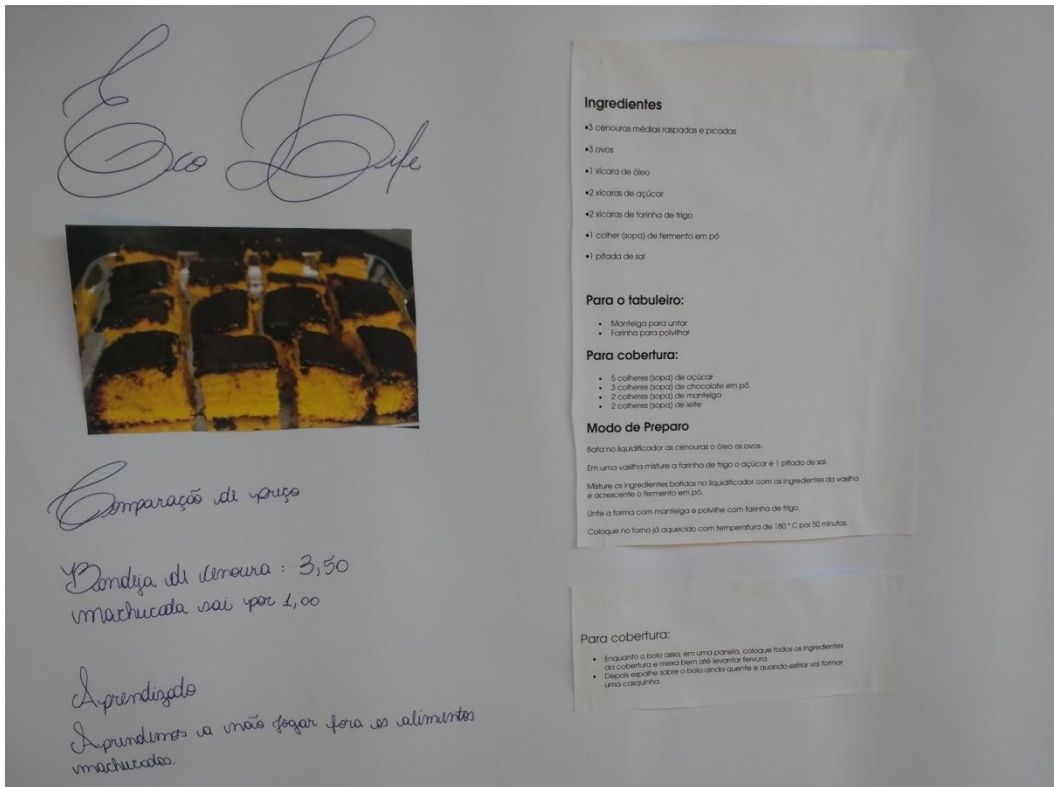 Eco Life
Comparação de preço
Bandeja de cenoura : 3,50
machucada sai por 1,00
Aprendizado
Aprendemos a não jogar fora os alimentos
machucados.
Ingredientes
•3 cenouras médias raspadas e picadas
•3 ovos
•1 xícara de óleo
•2 xícaras de açúcar
•2 xícaras de farinha de trigo
•1 colher (sopa) de fermento em pó
•1 pitada de sal
Para o tabuleiro:
• Manteiga para untar
• Farinha para polvilhar
Para cobertura:
• 5 colheres (sopa) de açúcar
• 3 colheres (sopa) de chocolate em pó
• 2 colheres (sopa) de manteiga
• 2 colheres (sopa) de leite
Modo de Preparo
Bata no liquidificador as cenouras o óleo os ovos.
Em uma vasilha misture a farinha de trigo o açúcar é 1 pitada de sal.
Misture os ingredientes batidos no liquidificador com os ingredientes da vasilha
e acrescente o fermento em pó.
Unte a forma com manteiga e polvilhe com farinha de trigo.
Coloque no forno já aquecido com temperatura de 180 ° C por 50 minutos.
Para cobertura:
• Enquanto o bolo assa, em uma panela, coloque todos os ingredientes
da cobertura e mexa bem até levantar fervura.
• Depois espalhe sobre o bolo ainda quente e quando esfriar vai formar
uma casquinha.